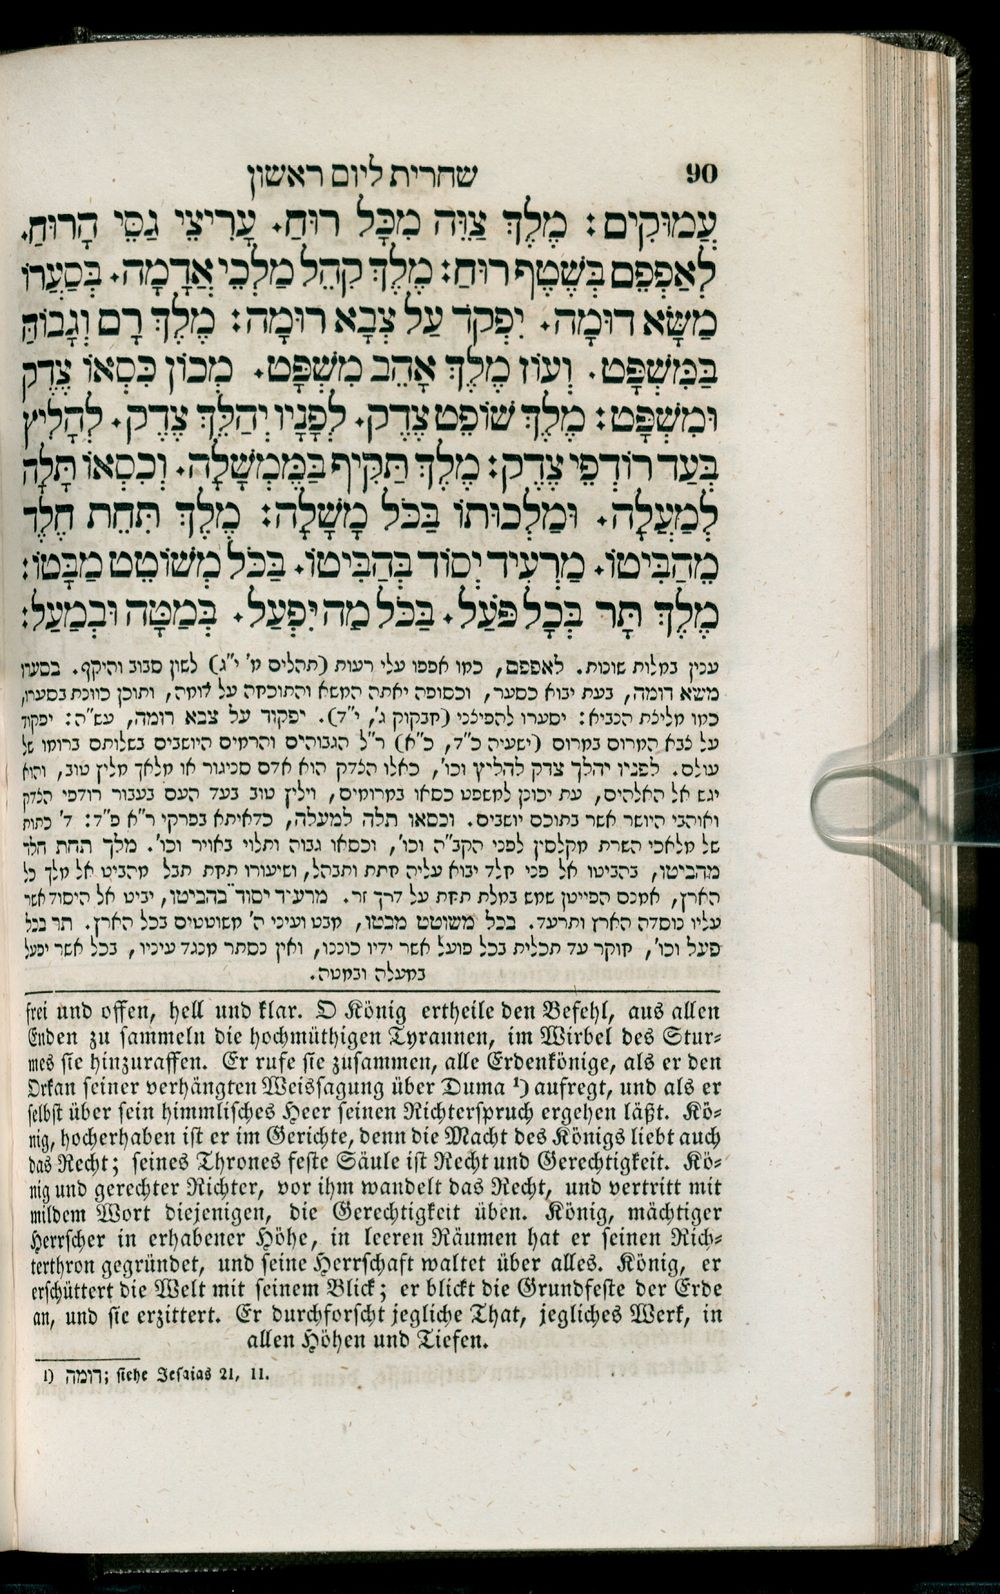 90
שחרית ליום ראשון
עֲמוּקִים: מֶלֶךְ צַוֵּה מִכָּל רוּחַ. עָרִיצֵי גַסֵּי הָרוּחַ.
לְאַפְפֵם בְּשֶׁטֶף רוּחַ: מֶלֶךְ קַהֵל מַלְכֵי אֲדָמָה. בְּסַעֲרוֹ
מַשָּׂא דוּמָה. יִפְקֹד עַל צְבָא רוּמָה: מֶלֶךְ רָם וְגָבוֹהַּ
בַּמִּשְׁפָּט. וְעוֹז מֶלֶךְ אָהֵב מִשְׁפָּט. מְכוֹן כִּסְאוֹ צֶדֶק
וּמִשְׁפָּט: מֶלֶךְ שׁוֹפֵט צֶדֶק. לְפָנָיו יְהַלֵּךְ צֶדֶק. לְהָלִיץ
בְּעַד רוֹדְפֵי צֶדֶק: מֶלֶךְ תַּקִּיף בַּמֶּמְשָׁלָה. וְכִסְאוֹ תָּלָה
לְמַעְלָה. וּמַלְכוּתוֹ בַּכֹּל מָשָׁלָה: מֶלֶךְ תִּחַת חֶלֶד
מֵהַבִּיטוֹ. מַרְעִיד יְסוֹד בְּהַבִּיטוֹ. בַּכֹּל מְשׁוֹטֵט מַבָּטוֹ:
מֶלֶךְ תָּר בְּכָל פֹּעַל. בַּכֹּל מַה יִּפְעַל. בְּמַטָּה וּבְמַעַל:
ענין במלות שונות. לאפפם, כמו אפפו עלי רעות (תהלים מ׳ י״ג) לשון סבוב והיקף. בסערו
משא דומה, בעת יבוא כסער, וכסופה יאתה המשא והתוכחה על דומה, ותוכן כוונת בסערו,
כמו מליצת הנביא: יסערו להפיצני (חבקוק ג׳, י״ד). יפקוד על צבא רומה, עש״ה: יפקוד
על צבא המרום במרום (ישעיה כ״ד, כ״א) ר״ל הגבוהים והרמים היושבים בשלותם ברומו של
עולם. לפניו יהלך צדק להליץ וכו׳, כאלו הצדק הוא אדם סניגור או מלאך מליץ טוב, והוא
יגש אל האלהים, עת יכונן למשפט כסאו במרומים, וילין טוב בעד העם בעבור רודפי הצדק
ואוהבי היושר אשר בתוכם יושבים. וכסאו תלה למעלה, כדאיתא בפרקי ר״א פ״ד: ד׳ כתות
של מלאכי השרת מקלסין לפני הקב״ה וכו׳, וכסאו גבוה ותלוי באויר וכו׳. מלך תחת חלד
מהביטו, בהביטו אל פני חלד יבוא עליה חתת ותבהל, ושיעורו תחת תבל מהביט אל מלך כל
הארץ, אמנם הפייטן שמש במלת תחת על דרך זר. מרעיד יסוד בהביטו, יביט אל היסוד אשר
עליו נוסדה הארץ ותרעד. בכל משוטט מבטו, מבט ועיני ה׳ משוטטים בכל הארץ. תר בכל
פעל וכו׳, חוקר עד תכלית בכל פועל אשר ידיו כוננו, ואין נסתר מנגד עיניו, בכל אשר יפעל
במעלה ובמטה.
frei und offen, hell und klar. O König ertheile den Befehl, aus allen
Enden zu sammeln die hochmüthigen Tyrannen, im Wirbel des Stur-
mes sie hinzuraffen. Er rufe sie zusammen, alle Erdenkönige, als er den
Orkan seiner verhängten Weissagung über Duma ¹) aufregt, und als er
selbst über sein himmlisches Heer seinen Richterspruch ergehen läßt. Kö-
nig, hocherhaben ist er im Gerichte, denn die Macht des Königs liebt auch
das Recht; seines Thrones feste Säule ist Recht und Gerechtigkeit. Kö-
nig und gerechter Richter, vor ihm wandelt das Recht, und vertritt mit
mildem Wort diejenigen, die Gerechtigkeit üben. König, mächtiger
Herrscher in erhabener Höhe, in leeren Räumen hat er seinen Rich-
terthron gegründet, und seine Herrschaft waltet über alles. König, er
erschüttert die Welt mit seinem Blick; er blickt die Grundfeste der Erde
an, und sie erzittert. Er durchforscht jegliche That, jegliches Werk, in
allen Höhen und Tiefen.
1) דומה; siehe Jesaias 21, 11.